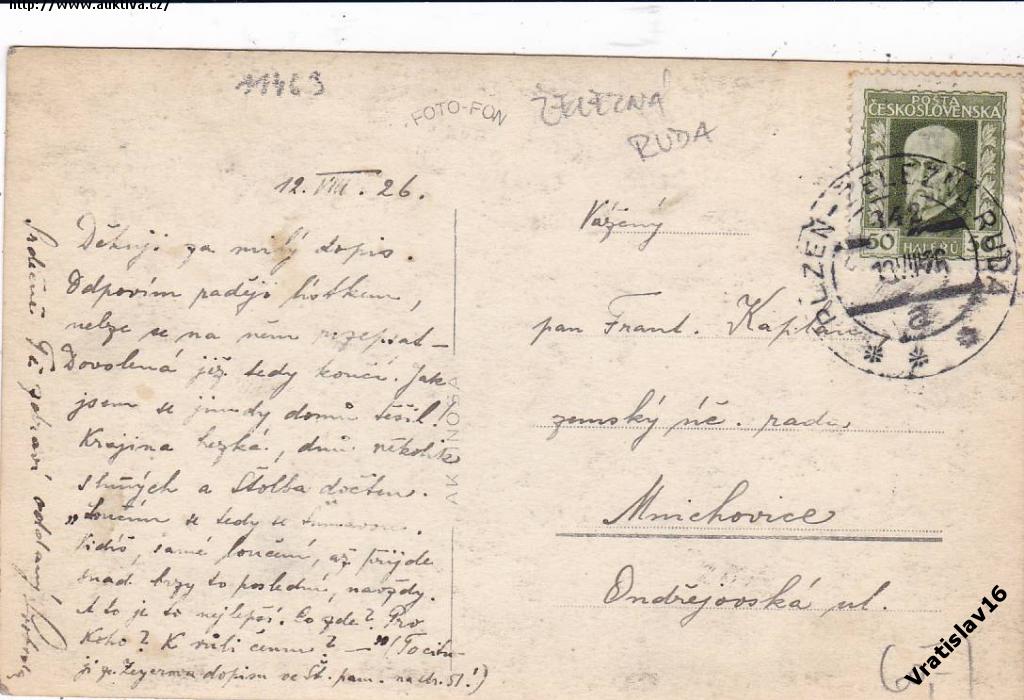 http://www.auktiva.cz/
11463
FOTO-FON
ŽELEZNÁ
RUDA
POŠTA
ČESKOSLOVENSKA
50 HALÉŘŮ 50
PLZEŇ-ŽELEZNÁ RUDA
342
a
12. VIII. 26.
Děkuji za milý dopis.
Odpovím raději lístkem,
nelze se na něm rozepsat –
Dovolená již tedy končí. Jak
jsem se jindy domů těšil!
Krajina hezká, dnů několik
slušných a Štolba dočten.
„Loučím se tedy se Šumavou.
Vidíš, samé loučení, až přijde
snad brzy to poslední, navždy.
A to je to nejlepší. Co zde? Pro
koho? K vůli čemu? –" (To cituji
ze Zeyerova dopisu ve Št. pam. na str. 51!)
Srdečně Tě zdraví oddaný
AKTINOSA
Vážený
pan Frant. Kaplan
zemský úč. rada
Mnichovice
Ondřejovská ul.
Vratislav16